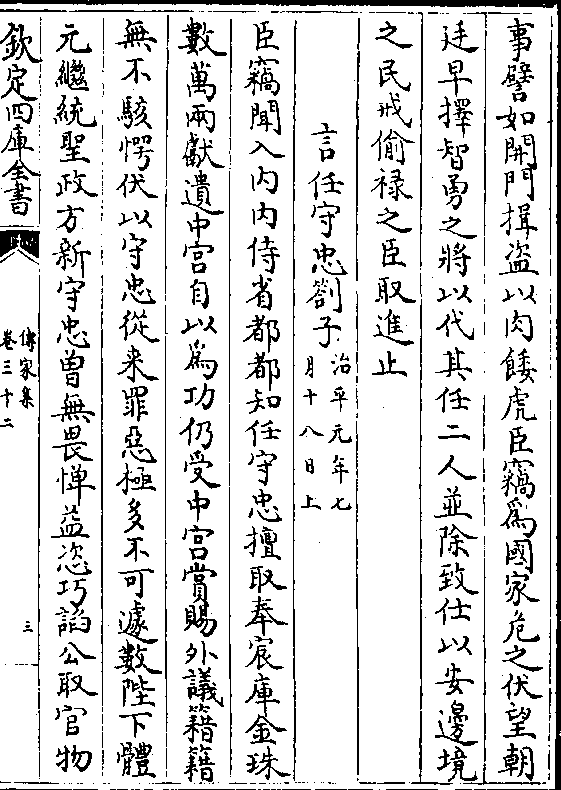 事譬如開門揖盗以肉餧虎臣竊為國家危之伏望朝
廷早擇智勇之將以代其任二人並除致仕以安邊境
之民戒偷禄之臣取進止
言任守忠劄子治平元年七
月十八日上
臣竊聞入内内侍省都都知任守忠擅取奉宸庫金珠
數萬兩獻遺中宮自以為功仍受中宮賞賜外議籍籍
無不駭愕伏以守忠從来罪惡極多不可遽數陛下體
元繼統聖政方新守忠曽無畏憚益恣巧謟公取官物
欽定四庫全書
傳家集
卷三十二
三